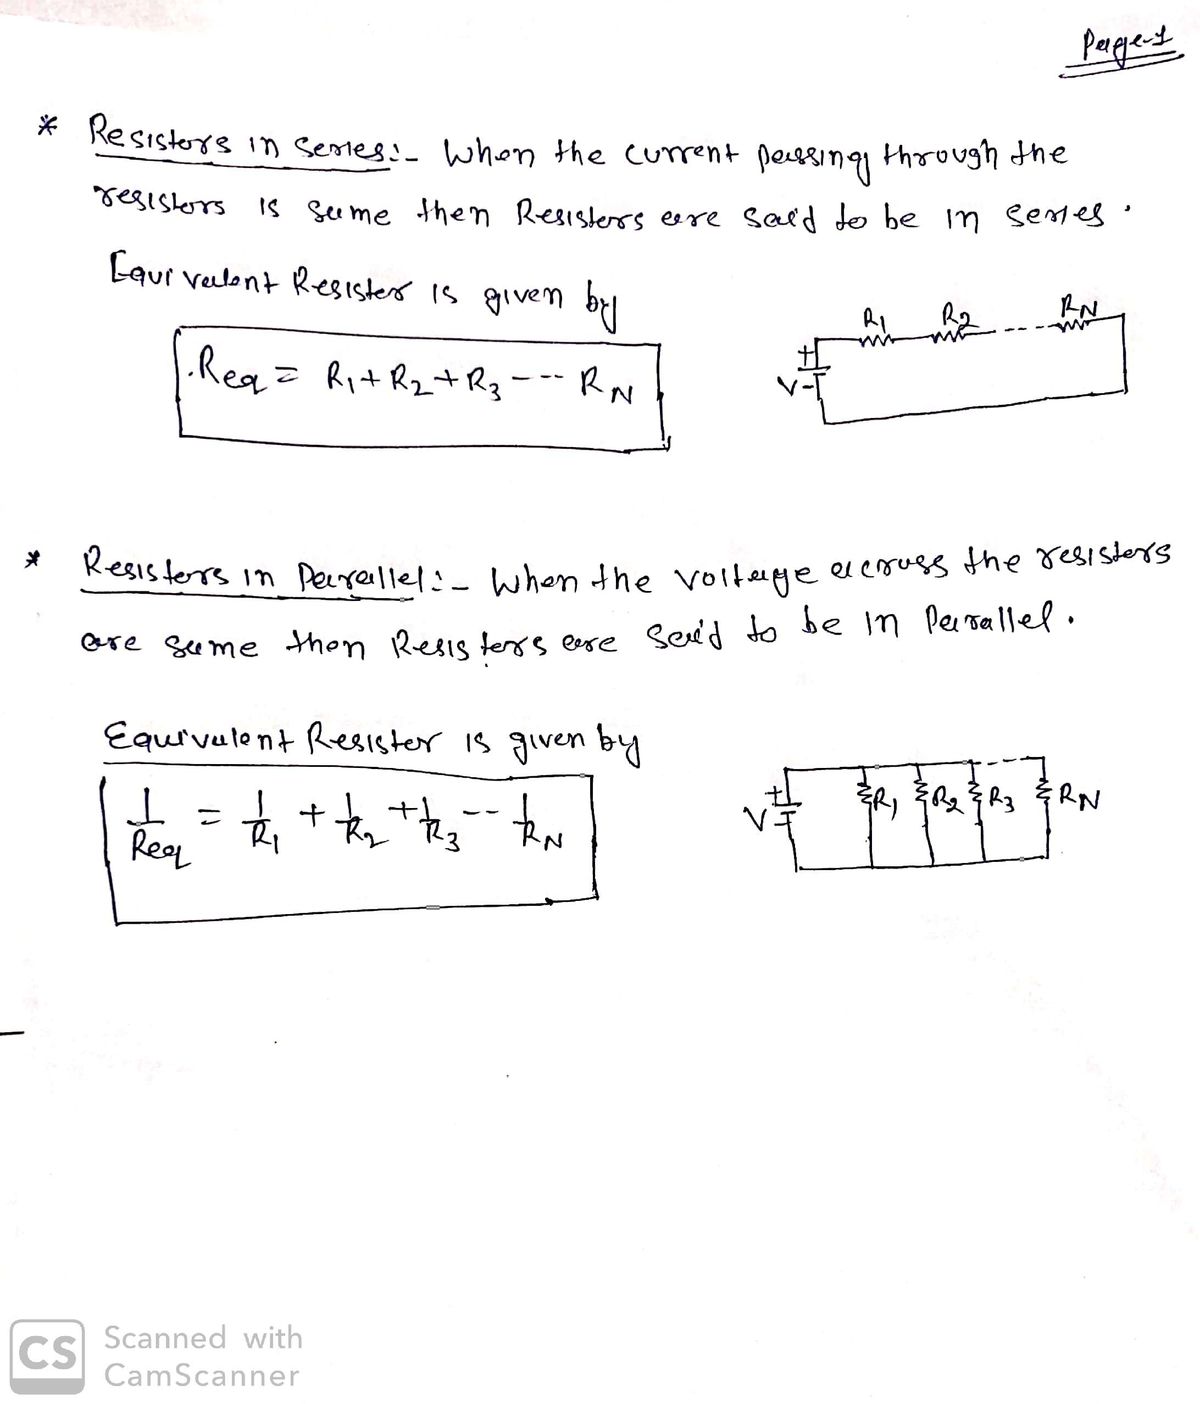 Page-1
* Resistors in series:- When the current passing through the
resistors is same then Resistors are said to be in series.
Equivalent Resistor is given by
Req = R1 + R2 + R3 --- RN
R1 R2 RN
+
V-
* Resistors in Parallel:- When the voltage across the resistors
are same then Resistors are said to be in Parallel.
Equivalent Resistor is given by
1/Req = 1/R1 + 1/R2 + 1/R3 -- 1/RN
+
V-
R1 R2 R3 RN
CS Scanned with
CamScanner